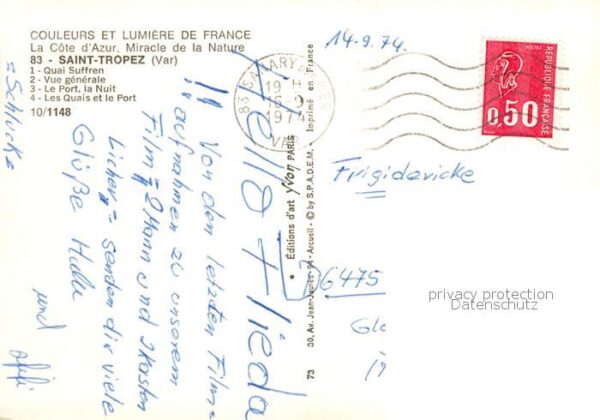 COULEURS ET LUMIÈRE DE FRANCE
La Côte d'Azur, Miracle de la Nature
83 - SAINT-TROPEZ (Var)
1 - Quai Suffren
2 - Vue générale
3 - Le Port, la Nuit
4 - Les Quais et le Port
10/1148
Hello Frieda
!! Von den letzten Film=
aufnahmen zu unserem
Film = 2 Mann und 2 Kasten
Licher, = senden dir viele
Grüße
und
=Schluck=
• Éditions d'art yvon PARIS
73 30, Av. Jean-Jaurès - 94 - Arcueil - © by S.P.A.D.E.M. - Imprimé en France
83 SANARY
19 H
16-9
1974
VAR
14.9.74.
RÉPUBLIQUE FRANÇAISE
0,50
6475
privacy protection
Datenschutz